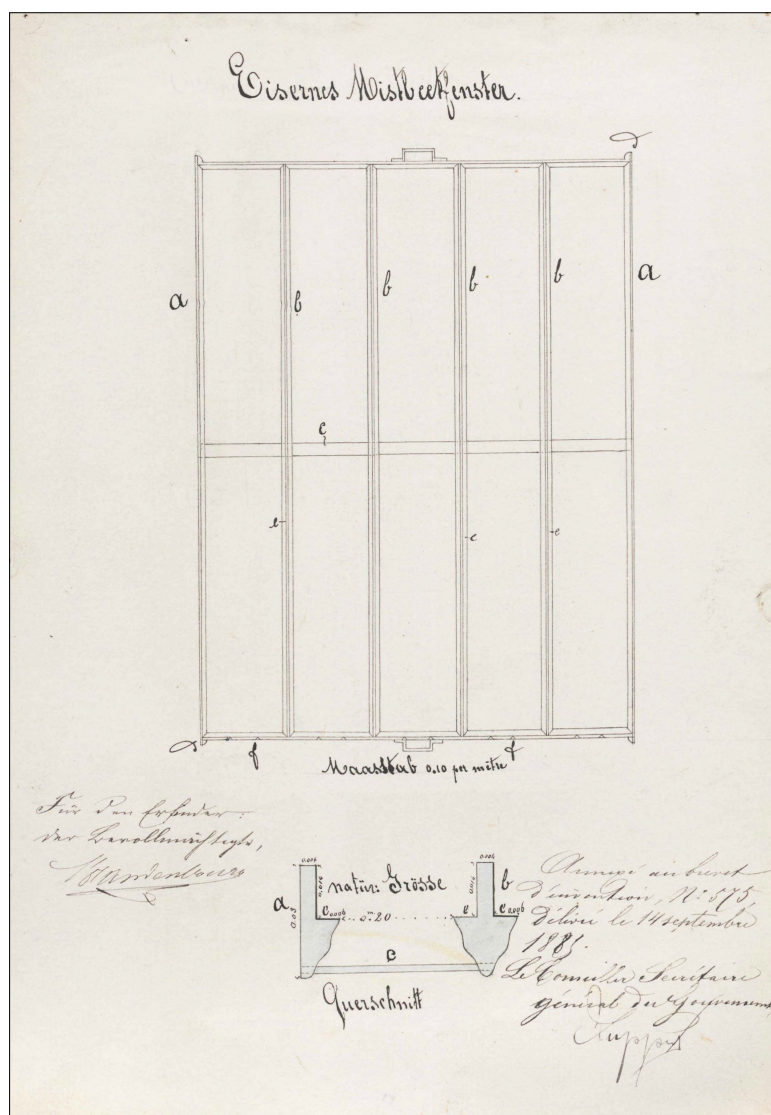 Eisernes Mistbeetfenster.
d
a b b b b a
c
e e e
d
f f
Maasstab 0.10 per mètre
Für den Erfinder:
der Bevollmächtigte,
0.006 0.006
a natür: Grösse b
0.03 0.014 0.014
e 0.006 0.m20 e e 0.006
c
Querschnitt
Annexé au brevet
d'invention, No 575,
délivré le 14 septembre
188.
Le Conseiller Secrétaire
général du Gouvernement
Ruppert